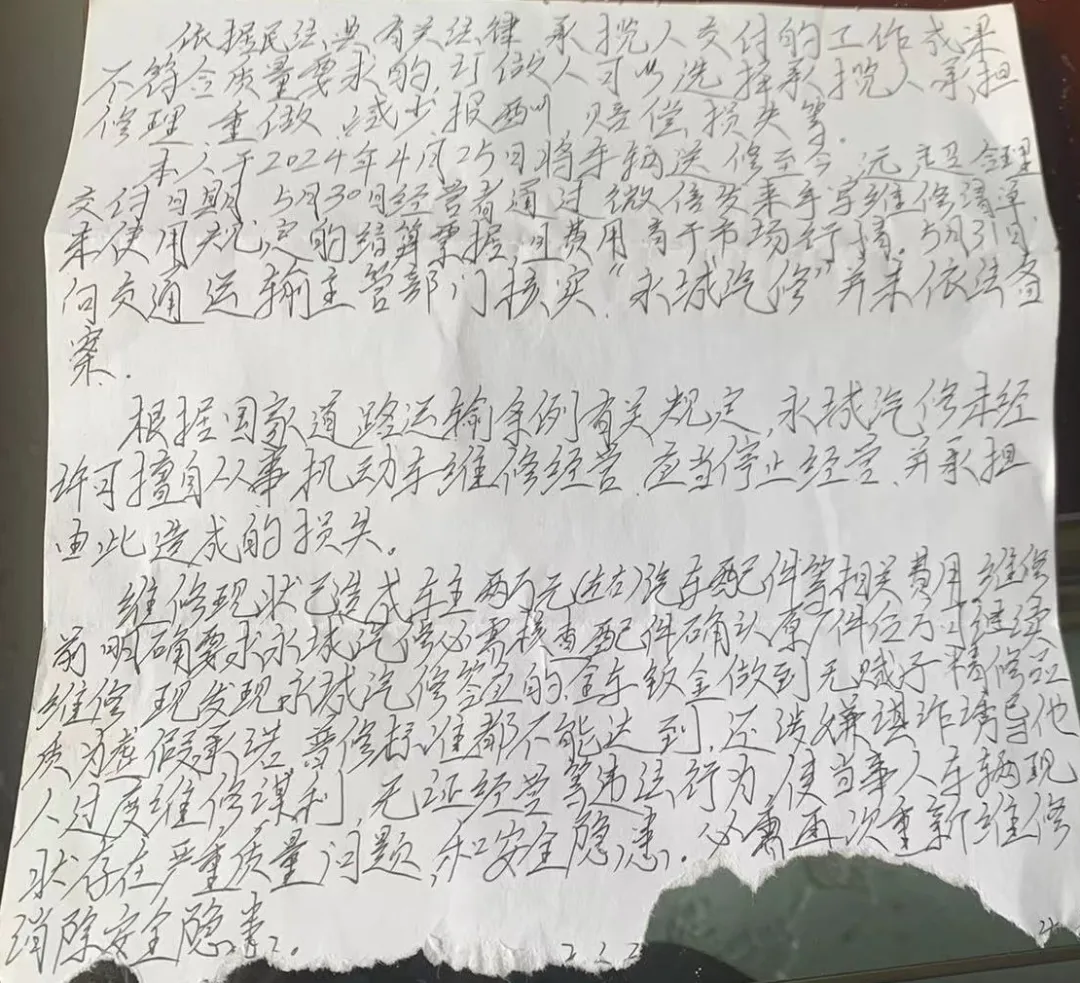 依据民法典有关法律 承揽人交付的工作成果
不符合质量要求的,订做人可以选择承揽人承担
修理、重做、减少报酬、赔偿损失等.
本人于2024年4月25日将车辆送修至今 远超合理
交付日期 5月30日经营者通过微信发来手写维修清单,
未使用规定的结算票据,且费用高于市场行情。5月31日
向交通运输主管部门核实"永城汽修"并未依法备
案.
根据国家道路运输条例有关规定,永城汽修未经
许可擅自从事机动车维修经营,应当停止经营,并承担
由此造成的损失。
维修现状已造成车主两万元(左右)汽车配件等相关费用 维修
前明确要求永城汽修必需核查配件确认原厂件位方可继续
维修 现发现永城汽修答应的,全车钣金做到无腻子精修品
质为虚假承诺 普修标准都不能达到,还涉嫌欺诈诱导他
人过度维修谋利,无证经营等违法行为,使当事人车辆现
状存在严重质量问题,和安全隐患.必需再次重新维修
消除安全隐患.